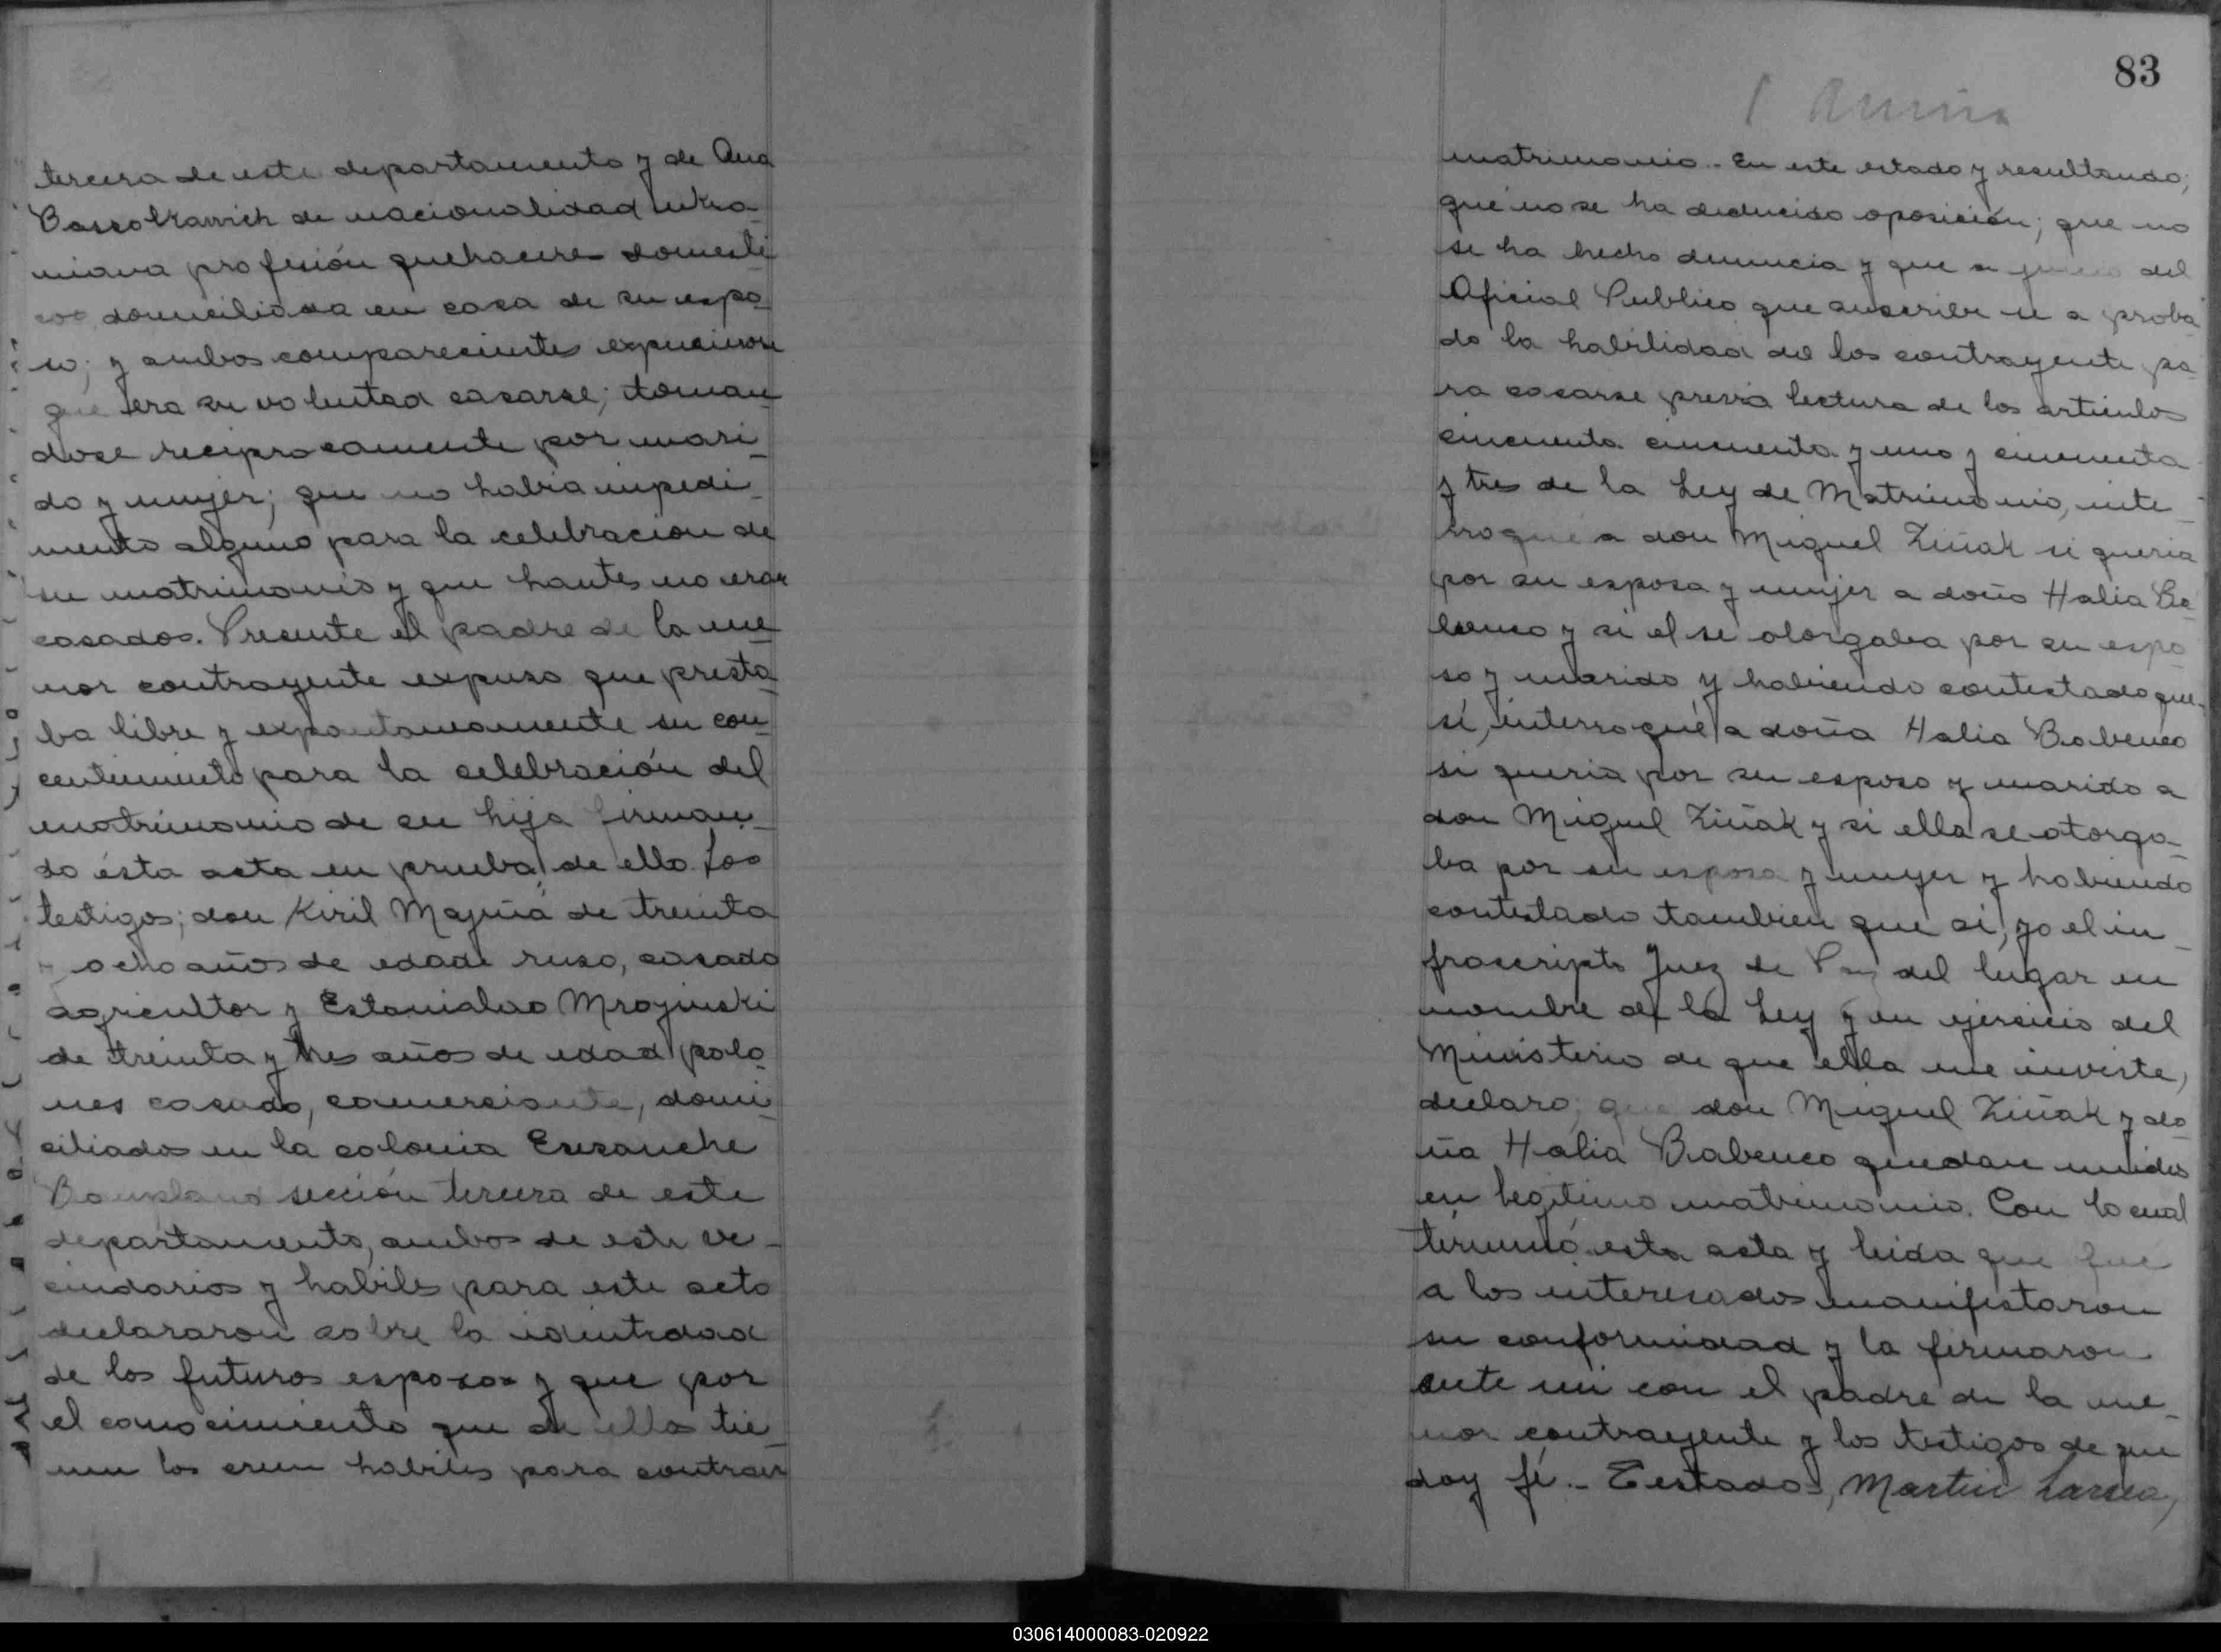 tercera de este departamento y de Ana
de nacionalidad ukra-
niana profesión quehaceres domesti
cos domiciliada en casa de su espo-
so; y ambos comparecientes expusieron
que era su voluntad casarse; toman-
dose reciprocamente por mari-
do y mujer; que no habia impedi-
mento alguno para la celebracion de
su matrimonio y que hantes no eran
casados. Presente el padre de la me-
nor contrayente expuso que presta-
ba libre y expontaneamente su con-
centimiento para la celebración del
matrimonio de su hija firman-
do ésta acta en prueba de ello. Los
testigos; don Kiril de treinta
y ocho años de edad ruso, casado
agricultor y Estanislao
de treinta y tres años de edad polo-
nes casado, comerciante, domi-
ciliados en la colonia Ensanche
Bompland sección tercera de este
departamento, ambos de este ve-
cindarios y habiles para este acto
declararon sobre la identidad
de los futuros esposos y que por
el conocimiento que de ellos tie-
nen los creen habiles para contraer
83
matrimonio.- En este estado y resultando;
que no se ha deducido oposición; que no
se ha hecho denuncia y que a juicio del
Oficial Publico que suscribe se a proba-
do la habilidad de los contrayente pa-
ra casarse previa lectura de los articulos
cincuenta cincuenta y uno y cincuenta
y tres de la Ley de Matrimonio, inte-
rroqué a don Miguel Ziñak si queria
por su esposa y mujer a doña Halia Ba-
benco y si el se otorgaba por su espo-
so y marido y habiendo contestado que
sí, interroqué a doña Halia Babenco
si queria por su esposo y marido a
don Miguel Ziñak y si ella se otorga-
ba por su esposa y mujer y habiendo
contestado tambien que si, yo el in-
frascripto Juez de Paz del lugar en
nombre de la Ley y en ejercicio del
Ministerio de que ella me inviste,
declaro; que don Miguel Ziñak y do-
ña Halia Babenco quedan unidos
en legitimo matrimonio. Con lo cual
términó esta acta y leida que fué
a los interesados manifestaron
su conformidad y la firmaron
ante mi con el padre de la me-
nor contrayente y los testigos de que
doy fé.- Testado, Martin Larrea,
030614000083-020922